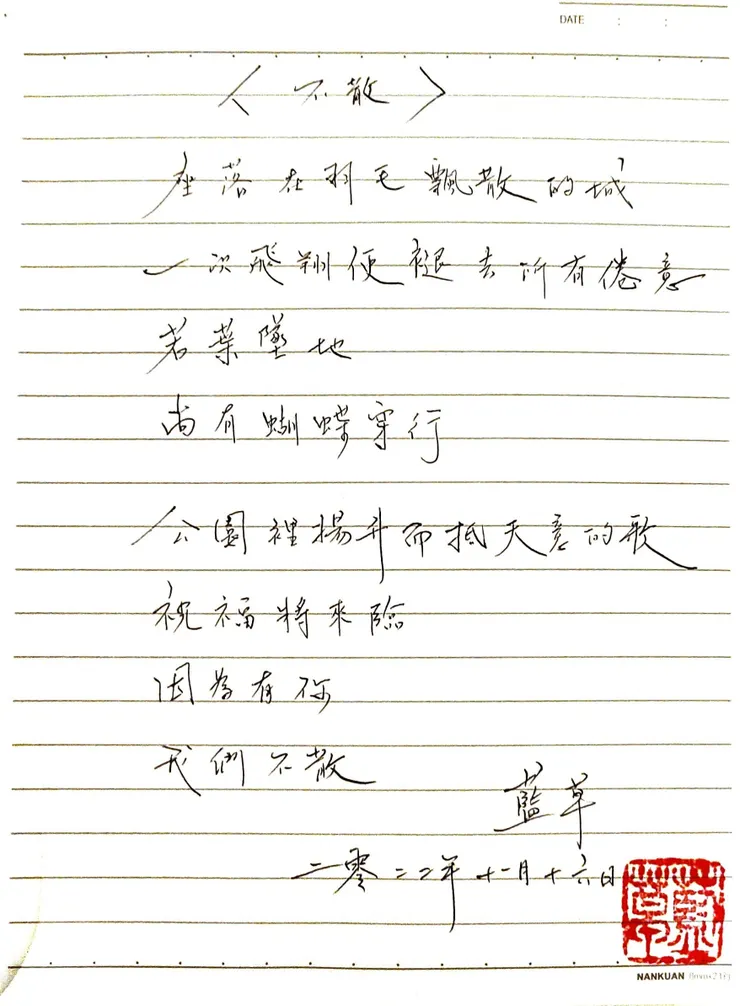 DATE : :
〈不散〉
座落在羽毛飄散的城
一次飛翔便褪去所有倦意
若葉墜地
尚有蝴蝶穿行
公園裡揚升而抵天意的歌
祝福將來臨
因為有你
我們不散
藍草
二零二二年十一月十六日
NANKUAN